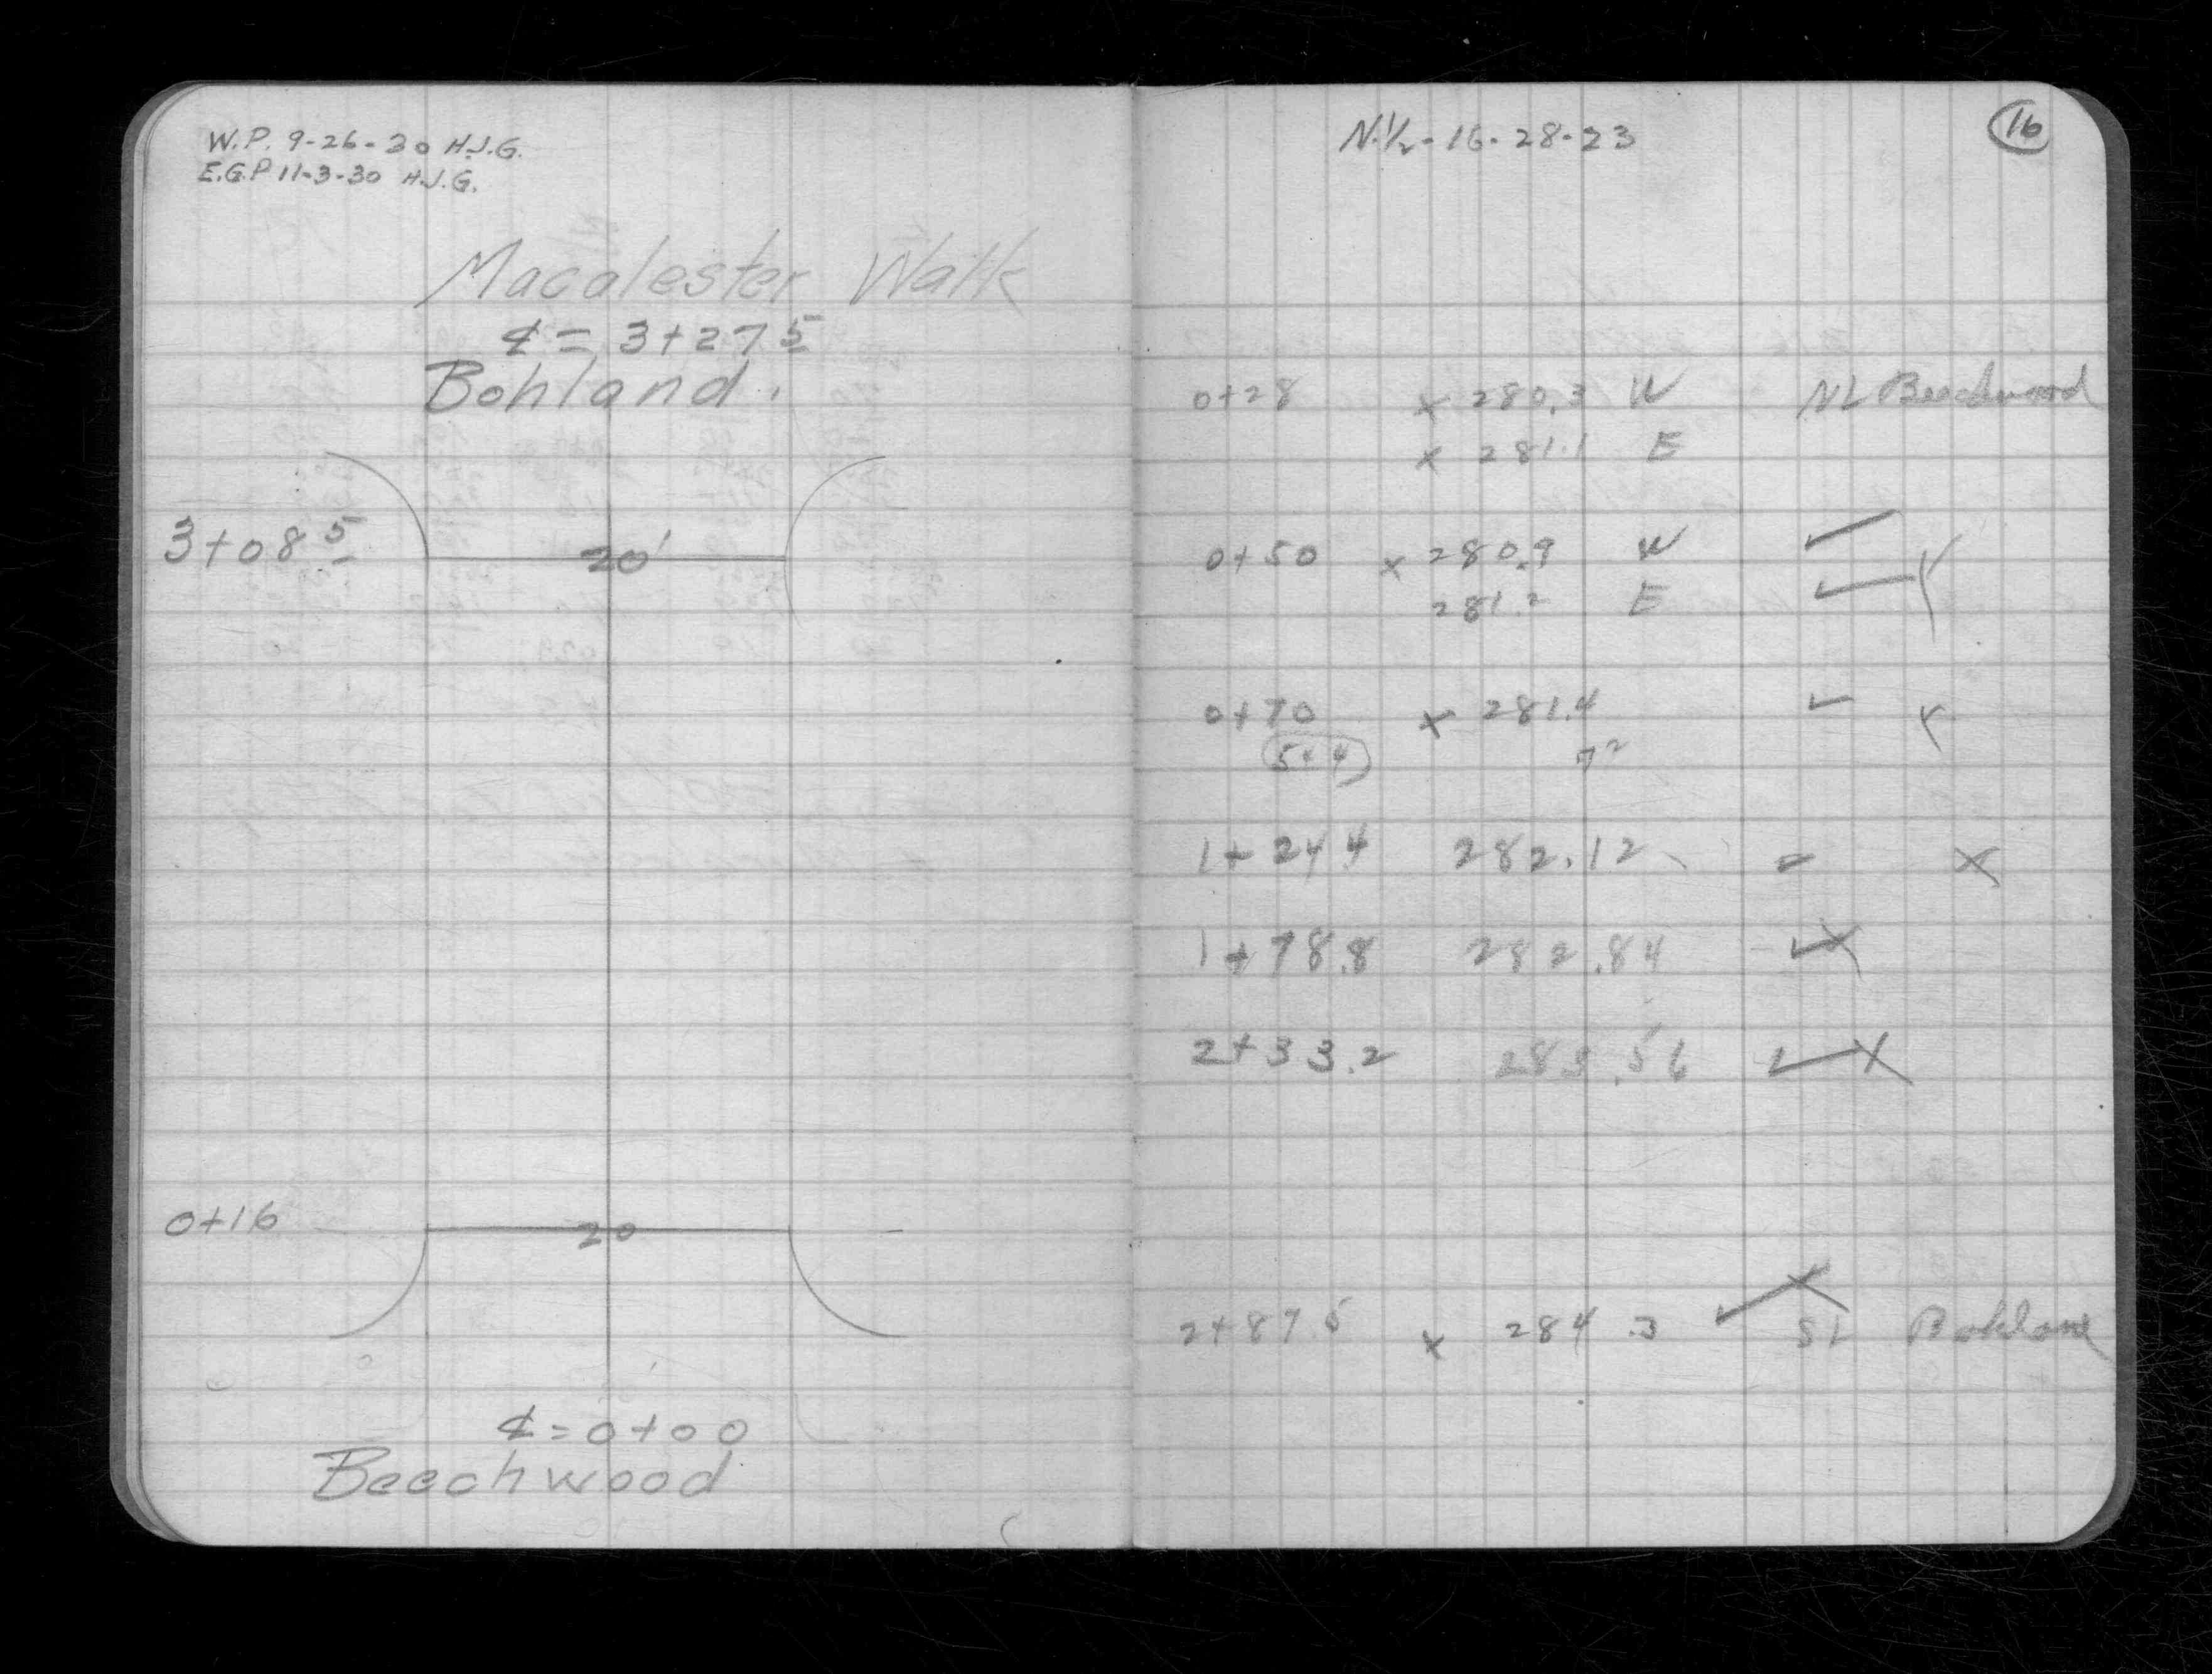 W.P. 9-26-30 H.J.G.
E.G.P 11-3-30 H.J.G.
Macalester Walk
℄ = 3+27 5
Bohland.
3+08 5
20'
0+16
20
℄ = 0+00
Beechwood
N.1/2-16-28-23
16
0+28 x 280.3 W NL Beechwood
x 281.1 E
0+50 x 280.9 W ✓
281.2 E ✓
0+70 x 281.4 ✓
54 4 72
1+24 4 282.12 x
1+78.8 282.84 ✓ x
2+33.2 283.56 ✓ x
2+87.5 x 284.3 ✓ x SL Bohland